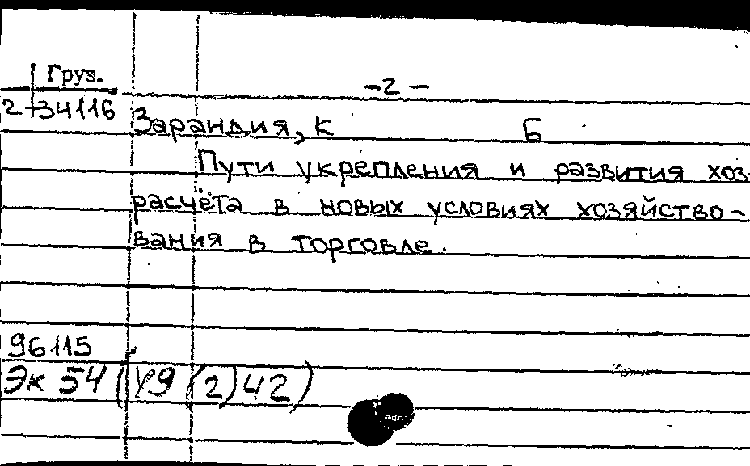 Груз.
- 2 -
2-34116
Зарандия, К Б
Пути укрепления и развития хоз-
расчёта в новых условиях хозяйство-
вания в торговле.
96115
Эк 54 (У9 (2) 42)